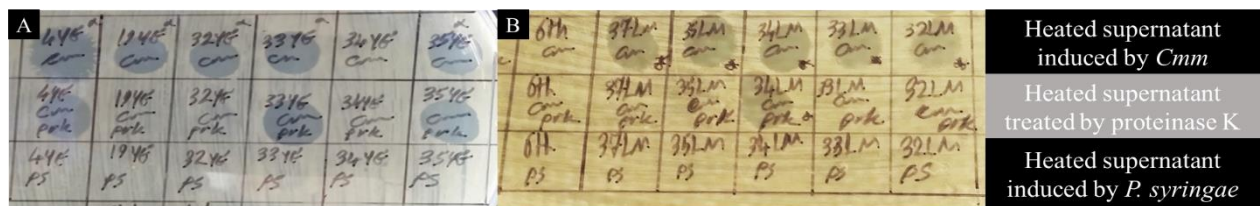 A
4YE
Cm
19YE
Cm
32YE
Cm
33YE
Cm
34YE
Cm
35YE
Cm
4YE
Cm
prk
19YE
Cm
prk
32YE
Cm
prk
33YE
Cm
prk
34YE
Cm
prk
35YE
Cm
prk
4YE
PS
19YE
PS
32YE
PS
33YE
PS
34YE
PS
35YE
PS
B
6th
Cm
37LM
Cm
35LM
Cm
34LM
Cm
33LM
Cm
32LM
Cm
6th
Cm
prk
37LM
Cm
prk
35LM
Cm
prk
34LM
Cm
prk
33LM
Cm
prk
32LM
Cm
prk
6th
PS
37LM
PS
35LM
PS
34LM
PS
33LM
PS
32LM
PS
Heated supernatant
induced by Cmm
Heated supernatant
treated by proteinase K
Heated supernatant
induced by P. syringae